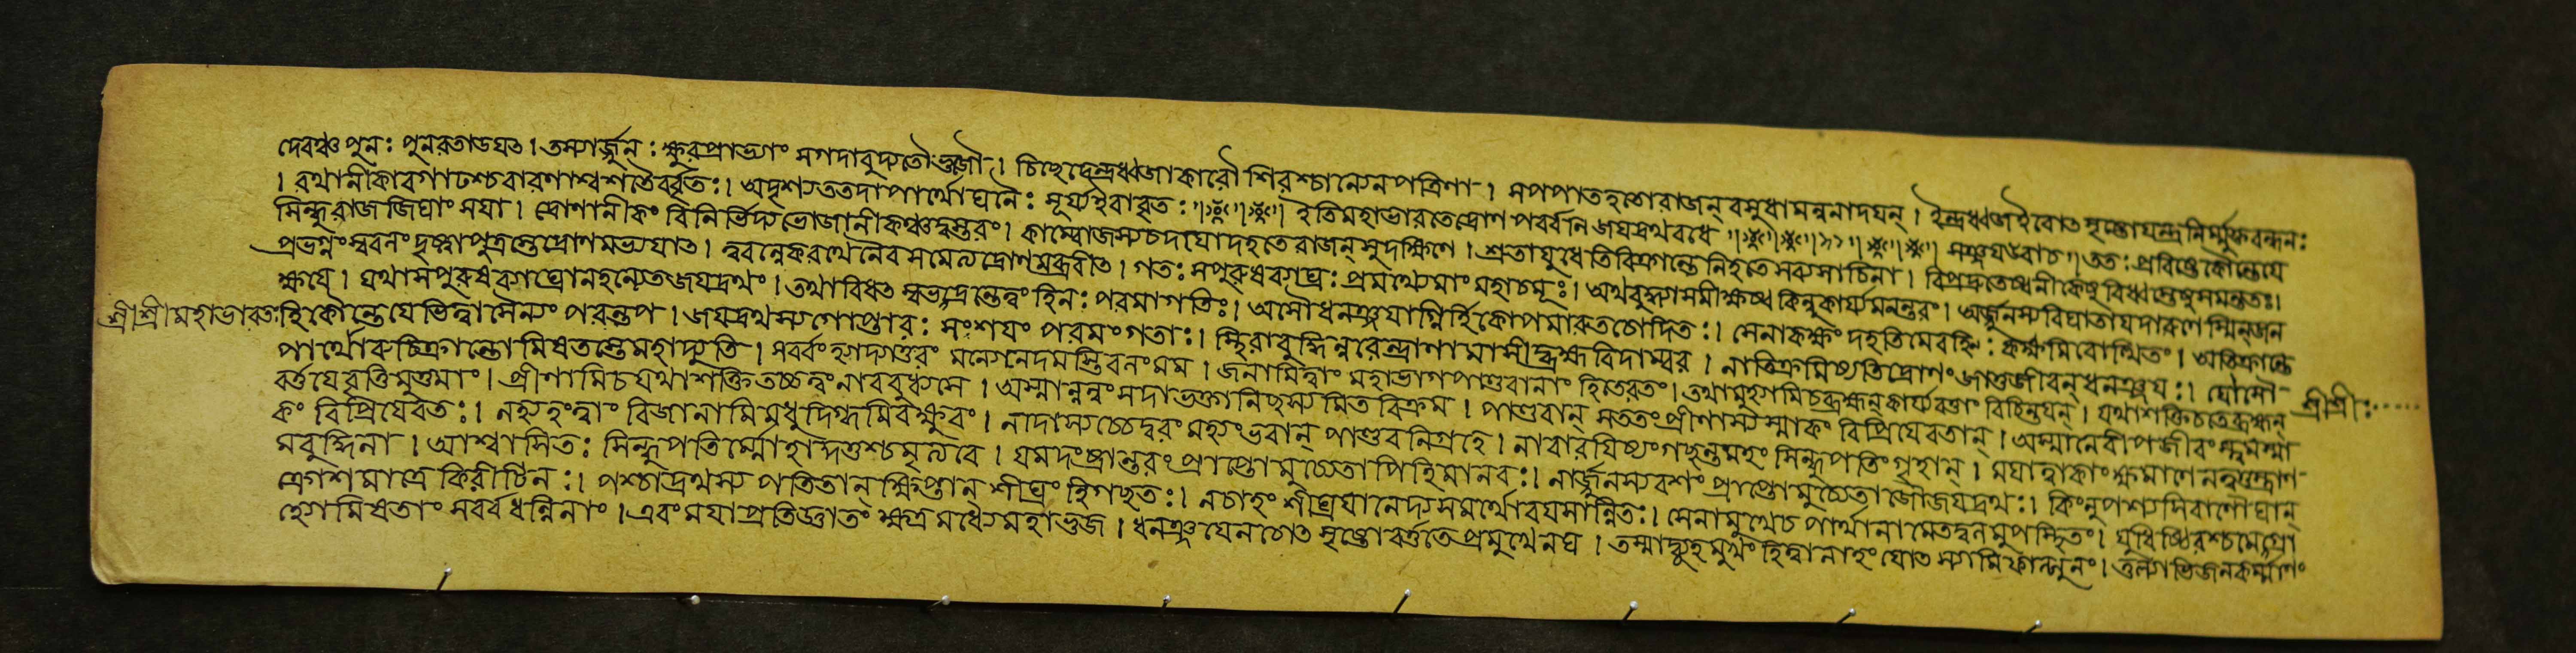 দেবঞ্চ পুনঃ পুনরতাডযৎ । তস্যার্জ্জুনঃ ক্ষুরপ্রাভ্যাং সগদাবুদ্যতৌ ভুজৌ । চিছেদেন্দ্রধ্বজাকারৌ শিরশ্চান্যেন পত্রিণা । স পপাত হতো রাজন্ বসুধামনুনাদযন্ । ইন্দ্রধ্বজ ইবোৎসৃষ্টো যন্ত্রনির্ম্মুক্তবন্ধনঃ
। রথানীকাবগাঢশ্চ বারণাশ্বশতৈর্ব্বৃতঃ । অদৃশ্যত তদা পার্থো ঘনৈঃ সূর্য্য ইবাবৃতঃ ॥ ইতি মহাভারতে দ্রোণপর্ব্বনি জযদ্রথবধে ॥ সঞ্জয উবাচ ॥ ততঃ প্রবিষ্টে কৌন্তেযে
সিন্ধুরাজজিঘাংসযা । দ্রোণানীকং বিনির্ভিদ্য ভোজানীকঞ্চ দুস্তরং । কাম্বোজস্য চ দাযাদে হতে রাজন্ সুদক্ষিণে । শ্রুতাযুধে তি বিক্রান্তে নিহতে সব্যসাচিনা । বিপ্রদ্রুতেষ্বনীকেষু বিধ্বস্তেষু সমন্ততঃ ।
প্রভগ্নং স্ববলং দৃষ্ট্বা পুত্রস্তে দ্রোণমভ্যযাৎ । ত্বরন্নেকরথেনৈব সমেত্য দ্রোণমব্রবীৎ । গতঃ স পুরুষব্যাঘ্রঃ প্রমথ্যেমাং মহাচমূং । অথ বুদ্ধ্যা সমীক্ষস্ব কিন্নু কার্য্যমনন্তরং । অর্জ্জুনস্য বিঘাতায দারুণে স্মিন্ জন
ক্ষযে । যথা স পুরুষব্যাঘ্রো ন হন্যেত জযদ্রথং । তথা বিধৎস্ব ভদ্রন্তে ত্বং হি নঃ পরমা গতিঃ । অসৌ ধনঞ্জযাগ্নির্হি কোপমারুতচোদিতঃ । সেনাকক্ষং দহতি মে বহ্নিঃ কক্ষমিবোত্থিতং । অতিক্রান্তে
শ্রীশ্রীমহাভারতঃ হি কৌন্তেযে ভিত্ত্বা সৈন্যং পরন্তপ । জযদ্রথস্য গোপ্তারঃ সংশযং পরমং গতাঃ । স্থিরা বুদ্ধির্নরেন্দ্রাণামাসীদ্ব্রহ্মবিদাম্বর । নাতিক্রমিষ্যতি দ্রোণং জাতু জীবন্ ধনঞ্জযঃ । যোসৌ
পার্থো ব্যতিক্রান্তো মিষতস্তে মহাদ্যুতি । সর্ব্বং হ্যদ্যাতুরং মন্যে নেদমস্তি বলং মম । জানামি ত্বাং মহাভাগ পাণ্ডবানাং হিতে রতং । তথা মুহ্যামি চ ব্রহ্মন্ কার্য্যবত্তাং বিচিন্তযন্ । যথাশক্তি চ তে ব্রহ্মন্ শ্রীশ্রীঃ
বর্ত্তযে বৃত্তিমুত্তমাং । প্রীণামি চ যথাশক্তি তচ্চ ত্বং নাববুধ্যসে । অস্মান্ন ত্বং সদা ভক্তানিছস্যমিতবিক্রম । পাণ্ডবান্ সততং প্রীণাস্যস্মাকং বিপ্রিযে রতান্ । অস্মানেবোপজীবংস্ত্বমস্মা
কং বিপ্রিযে রতঃ । ন হ্যহং ত্বাং বিজানামি মধুদিগ্ধমিব ক্ষুরং । নাদাস্যচ্চেদ্বরং মহ্যং ভবান্ পাণ্ডবনিগ্রহে । নাবারযিষ্যং গছন্তমহং সিন্ধুপতিং গৃহান্ । মযা ত্বাকাংক্ষমাণেন ত্বত্তস্ত্রাণ
মবুদ্ধিনা । আশ্বাসিতঃ সিন্ধুপতির্ম্মোহাদ্দত্তশ্চ মৃত্যবে । যমদংষ্ট্রান্তরং প্রাপ্তো মুচ্যেতাপি হি মানবঃ । নার্জ্জুনস্য বশং প্রাপ্তো মুচ্যেতাজৌ জযদ্রথঃ । কিংনু পশ্যসি বাণৌঘান্
ক্রোশমাত্রে কিরীটিনঃ । পশ্চাদ্রথস্য পতিতান্ ক্ষিপ্তান্ শীঘ্রং হি গছতঃ । ন চাহং শীঘ্রযানেদ্য সমর্থো বযসান্নিতঃ । সেনামুখে চ পার্থানামেতদ্বলমুপস্থিতং । যুধিষ্ঠিরশ্চ মে গ্রা
হ্যো মিষতাং সর্ব্বধন্নিনাং । এবং মযা প্রতিজ্ঞাতং ক্ষত্রমধ্যে মহাভুজ । ধনঞ্জযেন চোৎসৃষ্টো বর্ত্ততে প্রমুখে নৃপ । তস্মাদ্ব্যূহমুখং হিত্বা নাহং যোৎস্যামি ফাল্গুনং । তুল্যাভিজনকর্ম্মাণং